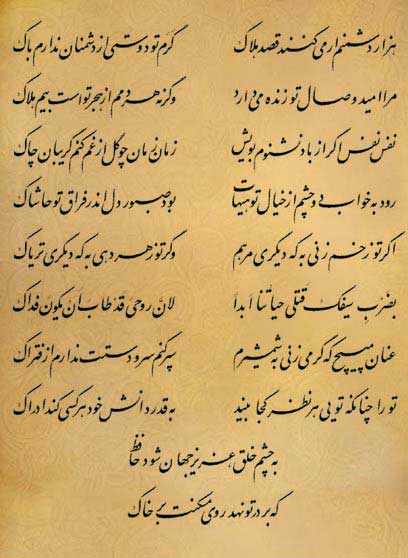 هزار دشمنم ار می‌کنند قصد هلاک گرم تو دوستی از دشمنان ندارم باک
مرا امید وصال تو زنده می‌دارد وگرنه هر دمم از هجر تو است بیم هلاک
نفس نفس اگر از باد نشنوم بویش زمان زمان چو گل از غم کنم گریبان چاک
رود به خواب دو چشم از خیال تو هیهات بود صبور دل اندر فراق تو حاشاک
اگر تو زخم زنی به که دیگری مرهم وگر تو زهر دهی به که دیگری تریاک
بضرب سیفک قتلی حیاتنا ابدا لان روحی قد طاب ان یکون فداک
عنان مپیچ که گر می‌زنی به شمشیرم سپر کنم سر و دستت ندارم از فتراک
تو را چنانکه تویی هر نظر کجا بیند به قدر دانش خود هر کسی کند ادراک
به چشم خلق عزیز جهان شود حافظ
که بر در تو نهد روی مسکنت بر خاک